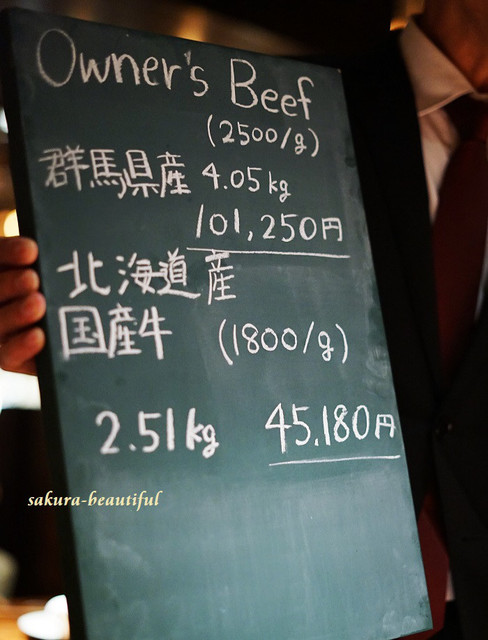 Owner's Beef
(2500/g)
群馬県産 4.05kg
101,250円
北海道産
国産牛 (1800/g)
2.51kg 45.180円
sakura-beautiful